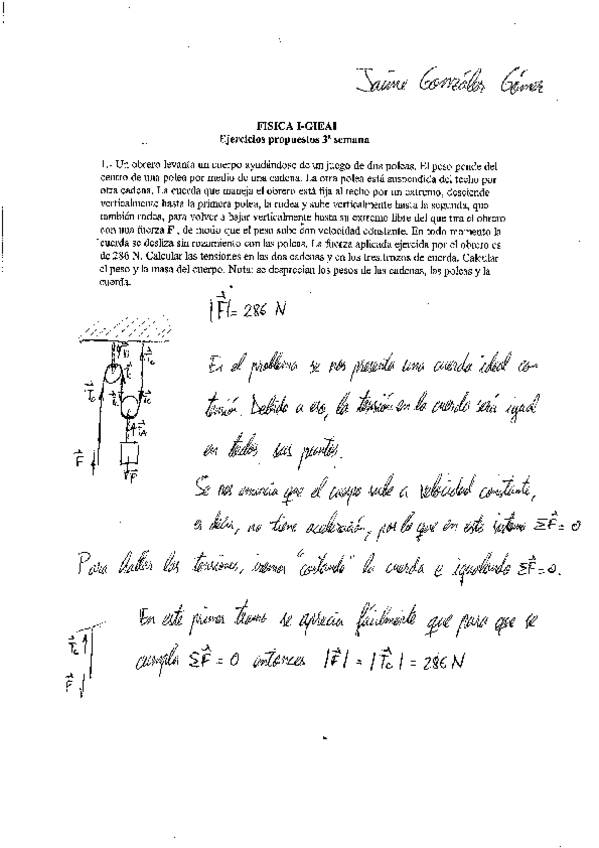 Jaime González Gómez
FISICA I-GIEAI
Ejercicios propuestos 3ª semana
1.- Un obrero levanta un cuerpo ayudándose de un juego de dos poleas. El peso pende del
centro de una polea por medio de una cadena. La otra polea está suspendida del techo por
otra cadena. La cuerda que maneja el obrero está fija al techo por un extremo, desciende
verticalmente hasta la primera polea, la rodea y sube verticalmente hasta la segunda, que
también rodea, para volver a bajar verticalmente hasta su extremo libre del que tira el obrero
con una fuerza F, de modo que el peso sube con velocidad constante. En todo momento la
cuerda se desliza sin rozamiento con las poleas. La fuerza aplicada ejercida por el obrero es
de 286 N. Calcular las tensiones en las dos cadenas y en los tres trozos de cuerda. Calcular
el peso y la masa del cuerpo. Nota: se desprecian los pesos de las cadenas, las poleas y la
cuerda.
|F| = 286 N
En el problema se nos presenta una cuerda ideal con
tensión. Debido a eso, la tensión en la cuerda será igual
en todos sus puntos.
Se nos enuncia que el cuerpo sube a velocidad constante,
es decir, no tiene aceleración, por lo que en este sistema ΣF = 0
Para hallar las tensiones, iremos "cortando" la cuerda e igualando ΣF = 0.
En este primer tramo se aprecia fácilmente que para que se
cumpla ΣF = 0 entonces |F| = |Tc| = 286 N
Tc
F
Tc
Tc
Tc
F
P